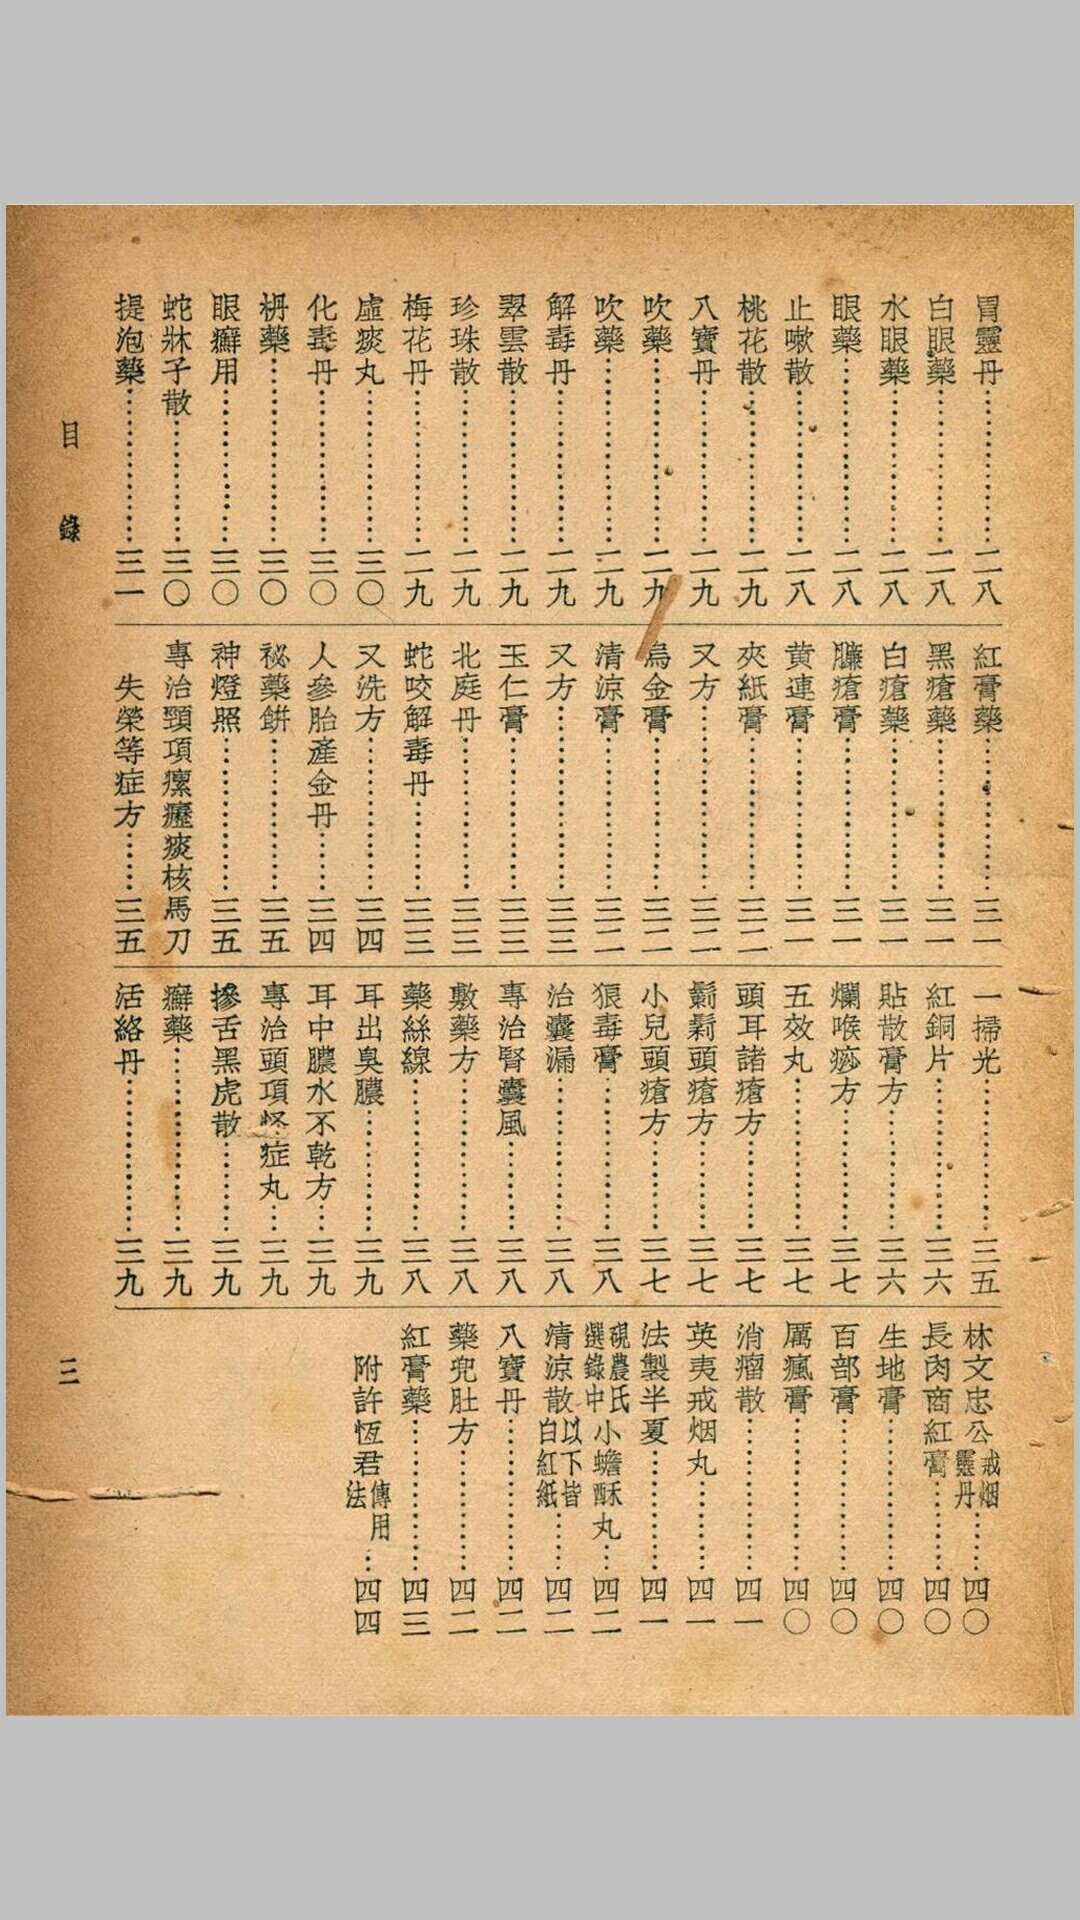 胃靈丹⋯⋯二八
白眼藥⋯⋯二八
水眼藥⋯⋯二八
眼藥⋯⋯二八
止嗽散⋯⋯二八
桃花散⋯⋯二九
八寶丹⋯⋯二九
吹藥⋯⋯二九
吹藥⋯⋯二九
解毒丹⋯⋯二九
翠雲散⋯⋯二九
珍珠散⋯⋯二九
梅花丹⋯⋯二九
虛痰丸⋯⋯三〇
化毒丹⋯⋯三〇
枬藥⋯⋯三〇
眼癬用⋯⋯三〇
蛇牀子散⋯⋯三〇
提泡藥⋯⋯三一
紅膏藥⋯⋯三一
黑瘡藥⋯⋯三一
白瘡藥⋯⋯三一
臁瘡膏⋯⋯三一
黃連膏⋯⋯三一
夾紙膏⋯⋯三二
又方⋯⋯三二
烏金膏⋯⋯三二
清涼膏⋯⋯三二
又方⋯⋯三三
玉仁膏⋯⋯三三
北庭丹⋯⋯三三
蛇咬解毒丹⋯⋯三三
又洗方⋯⋯三四
人參胎產金丹⋯⋯三四
祕藥餅⋯⋯三五
神燈照⋯⋯三五
專治頸項瘰癧痰核馬刀
失榮等症方⋯⋯三五
一掃光⋯⋯三五
紅銅片⋯⋯三六
貼散膏方⋯⋯三六
爛喉痧方⋯⋯三七
五效丸⋯⋯三七
頭耳諸瘡方⋯⋯三七
鬎鬁頭瘡方⋯⋯三七
小兒頭瘡方⋯⋯三七
狼毒膏⋯⋯三八
治囊漏⋯⋯三八
專治腎囊風⋯⋯三八
敷藥方⋯⋯三八
藥絲線⋯⋯三八
耳出臭膿⋯⋯三九
耳中膿水不乾方⋯⋯三九
專治頭項怪症丸⋯⋯三九
摻舌黑虎散⋯⋯三九
癬藥⋯⋯三九
活絡丹⋯⋯三九
林文忠公戒烟靈丹⋯⋯四〇
長肉商紅膏⋯⋯四〇
生地膏⋯⋯四〇
百部膏⋯⋯四〇
厲瘋膏⋯⋯四〇
消瘤散⋯⋯四一
英夷戒烟丸⋯⋯四一
法製半夏⋯⋯四一
硯農氏選錄中小蟾酥丸⋯⋯四二
清涼散以下皆白紅紙⋯⋯四二
八寶丹⋯⋯四二
藥兜肚方⋯⋯四二
紅膏藥⋯⋯四三
附許恆君傳用法⋯⋯四四
目錄
三